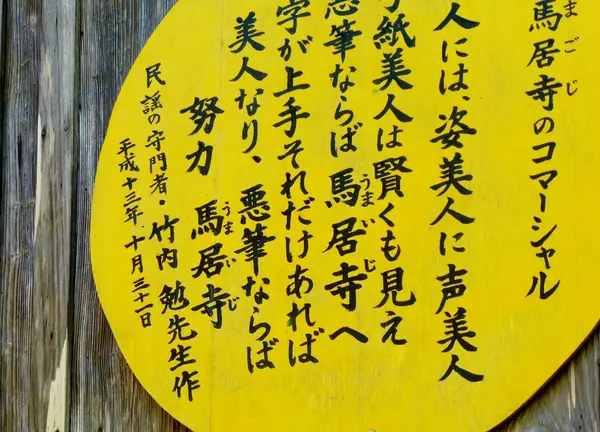 まごじ
馬居寺のコマーシャル
人には、姿美人に声美人
手紙美人は賢くも見え
うまいじ
悪筆ならば馬居寺へ
字が上手それだけあれば
美人なり、悪筆ならば
うまいじ
努力 馬居寺
民謡の守門者・竹内勉先生作
平成十三年十月三十一日